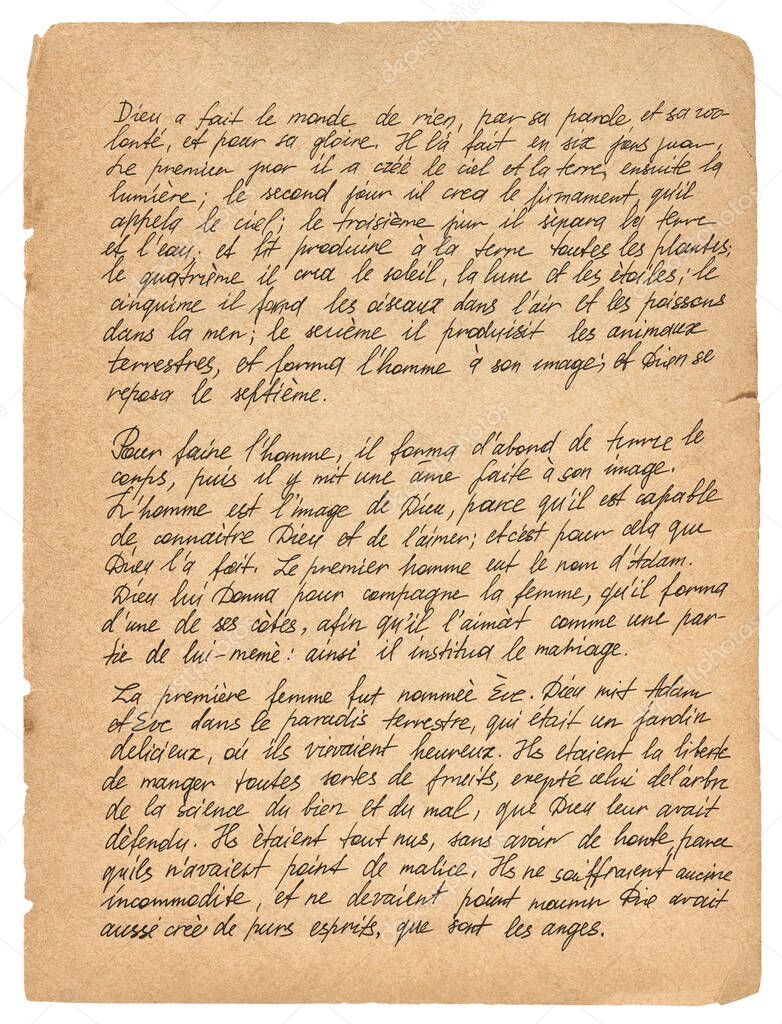 Dieu a fait le monde de rien, par sa parole et sa vo-
lonté, et pour sa gloire. Il l'a fait en six jours
Le premier jour il a créé le ciel et la terre, ensuite la
lumière; le second jour il crea le firmament qu'il
appela le ciel; le troisième jour il sèpara la terre
et l'eau, et fit produire a la terre toutes les plantes;
le quatrième il crea le soleil, la lune et les ètoiles; le
cinquime il les oiseaux dans l'air et les poissons
dans la mer; le sixième il produisit les animaux
terrestres, et forma l'homme à son image; et Dieu se
reposa le septième.
Pour faire l'homme, il forma d'abord de terre le
corps, puis il y mit une ame faite à son image.
L'homme est l'image de Dieu, parce qu'il est capable
de connaitre Dieu et de l'aimer; et c'est pour cela que
Dieu l'a fait. Le premier homme eut le nom d'Adam.
Dieu lui Donna pour compagne la femme, qu'il forma
d'une de ses còtes, afin qu'il l'aimàt comme une par-
tie de lui-memè: ainsi il institua le mariage.
La première femme fut nommèe Ève. Dieu mit Adam
et Eve dans le paradis terrestre, qui était un jardin
delicieux, où ils vivaient heureux. Ils etaient la liberte
de manger toutes sortes de fruits, exepté celui de l'arbre
de la science du bien et du mal, que Dieu leur avait
dèfendu. Ils ètaient tout nus, sans avoir de honte, parce
qu'ils n'avaient point de malice. Ils ne souffraient aucune
incommodite, et ne devaient point mourir Die avait
aussi crèe de purs esprits, que sont les anges.